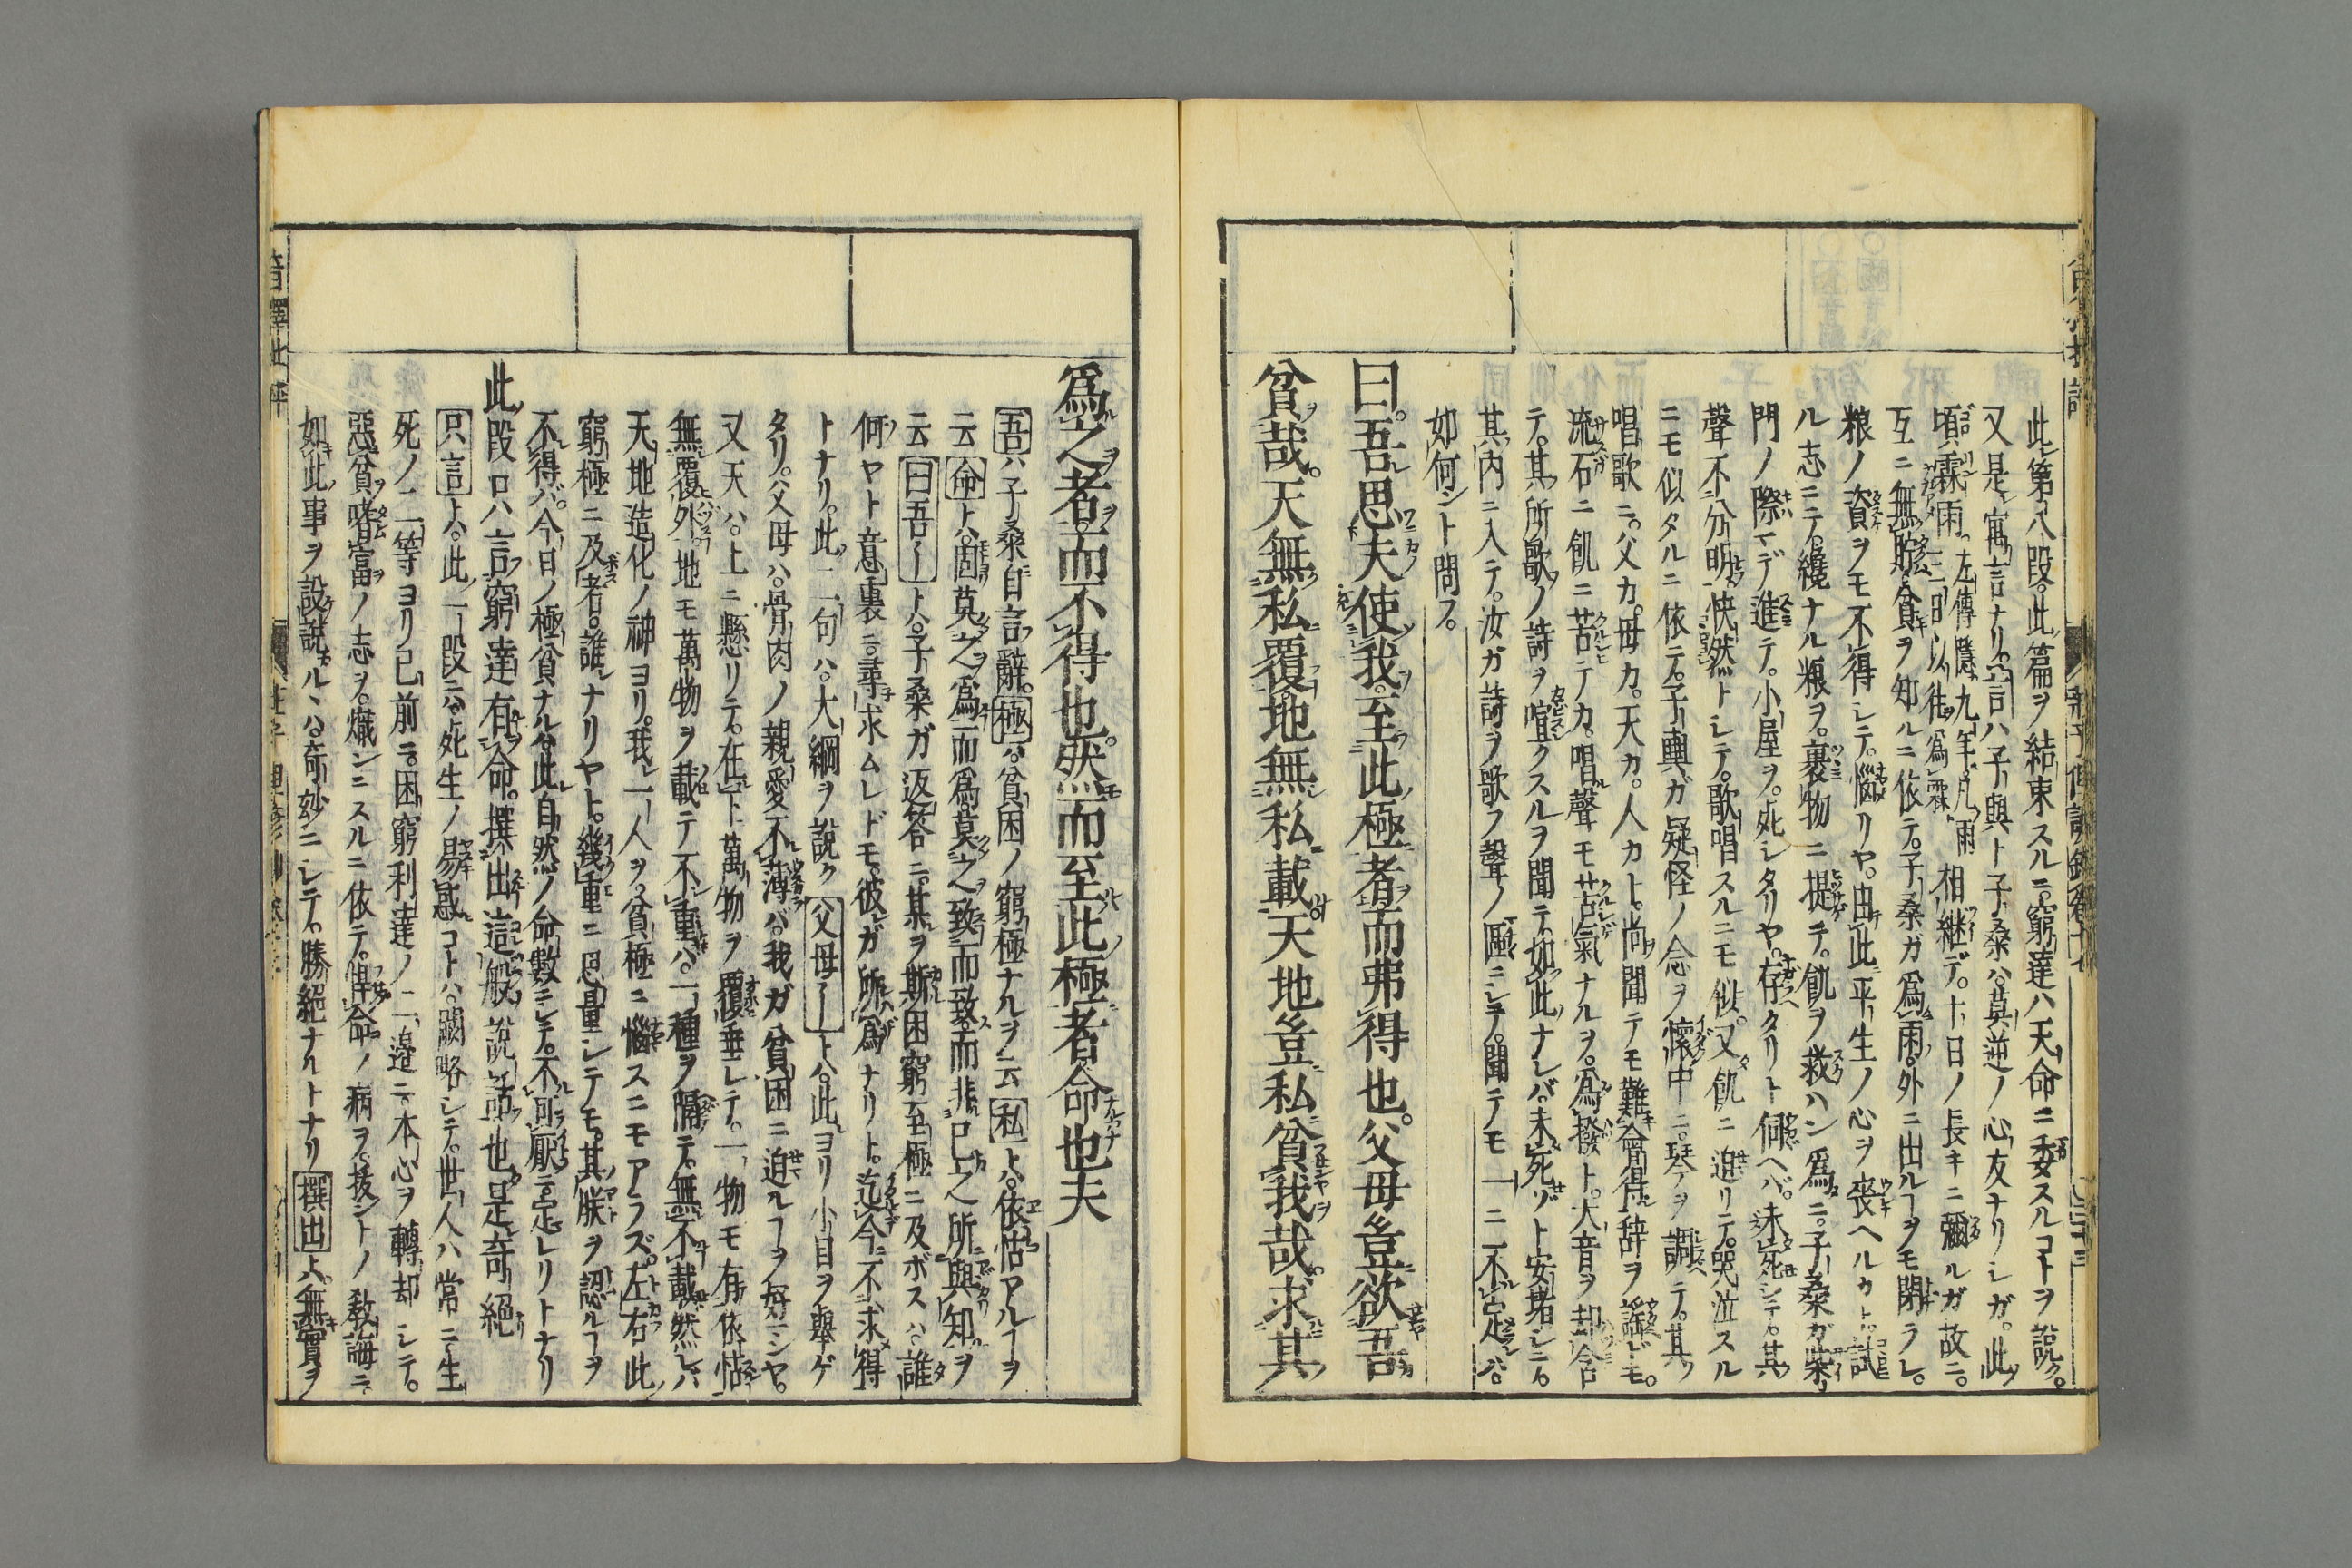 此第八段。此篇ヲ結束スルニ。窮達ハ天命ニ委スルコトヲ說ク。
又是寓言ナリ。言ハ子輿ト子桑ハ。莫逆ノ心友ナリシガ。此
頃霖雨左傳隱九年。凡雨三日以往爲霖相繼デ。十日ノ長キニ彌ルガ故ニ。
互ニ無貯貧ヲ知ルニ依テ。子桑ガ爲雨。外ニ出ルヿヲモ閉ラレ。
粮ノ資ヲモ不得シテ。惱リヤ。由此平生ノ心ヲ喪ヘルカト。試
ル志ニテ。纔ナル粮ヲ。裹物ニ提テ。飢ヲ救ハン爲ニ。子桑ガ柴
門ノ際マデ進テ。小屋ヲ。死シタリヤ。存タリト伺ヘバ。未死シテ。其
聲不分明。怏然トシテ。歌唱スルニモ似。又飢ニ迫リテ。哭泣スル
ニモ似タルニ依テ。子輿ガ疑怪ノ念ヲ懷中ニ。琴ヲ調ベテ。其
唱歌ニ。父カ。母カ。天カ。人カト。尚聞テモ難會得辞ヲ謡ドモ。
流石ニ飢ニ苦テカ。唱聲モ苦氣ナルヲ。爲撥ト。大音ヲ却含
テ。其所歌ノ詩ヲ喧クスルヲ聞テ。如此ナレバ。未死ゾト安堵シニ。
其内ニ入テ。汝ガ詩ヲ歌フ聲ノ區ニシテ。聞テモ一ニ不定ハ。
如何ント問フ。
曰。吾思夫使我至此極者而弗得也。父母豈欲吾
貧哉。天無私覆。地無私載。天地豈私貧我哉。求其
爲之者而不得也。然而至此極者命也夫
吾ハ子桑自言辭。極ハ。貧困ノ窮極ナルヲ云私トハ。依怙アルヿヲ
云命トハ。固莫之爲而爲。莫之致而致。而非己之所與知ヲ
云曰吾ートハ。子桑ガ返答ニ。某ヲ斯困窮至極ニ及ボスハ。誰
何ヤト意裏ニ。尋求ムレドモ。彼ガ所爲ナリト。迄今ニ不求得
トナリ。此二句ハ。大綱ヲ說ク父母ートハ。此ヨリ小目ヲ舉ゲ
タリ。父母ハ。骨肉ノ親愛不薄バ。我ガ貧困ニ迫ルヿヲ好ンヤ。
又天ハ。上ニ懸リテ。在下萬物ヲ覆垂レテ。一物モ有依怙
無覆外。地モ萬物ヲ載テ不重ハ。一種ヲ隔テ。無不載。然レハ
天地造化ノ神ヨリ。我一人ヲ。貧極ニ惱スニモアラズ。左右此
窮極ニ及者。誰ナリヤト。幾重ニ思量シテモ。其朕ヲ認ルヿヲ
不得バ。今日ノ極貧ナルハ。此自然ノ命數ニシテ。不可厭ニ定レリトナリ
此段口ハ言窮達有命。撰出這般說話也是奇絕
只言トハ。此一段ニハ。死生ノ易惑コトハ。闕略シテ。世人ハ常ニ生
死ノ二等ヨリ已前ニ。困窮利達ノ二邊ニ。本心ヲ轉却シテ。
惡貧嗜富ノ志ヲ。熾ンニスルニ依テ。悍命ノ病ヲ。拔ントノ教誨ニ
如此事ヲ設說ルハ。奇妙ニシテ。勝絕ナルトナリ撰出トハ。無實ヲ